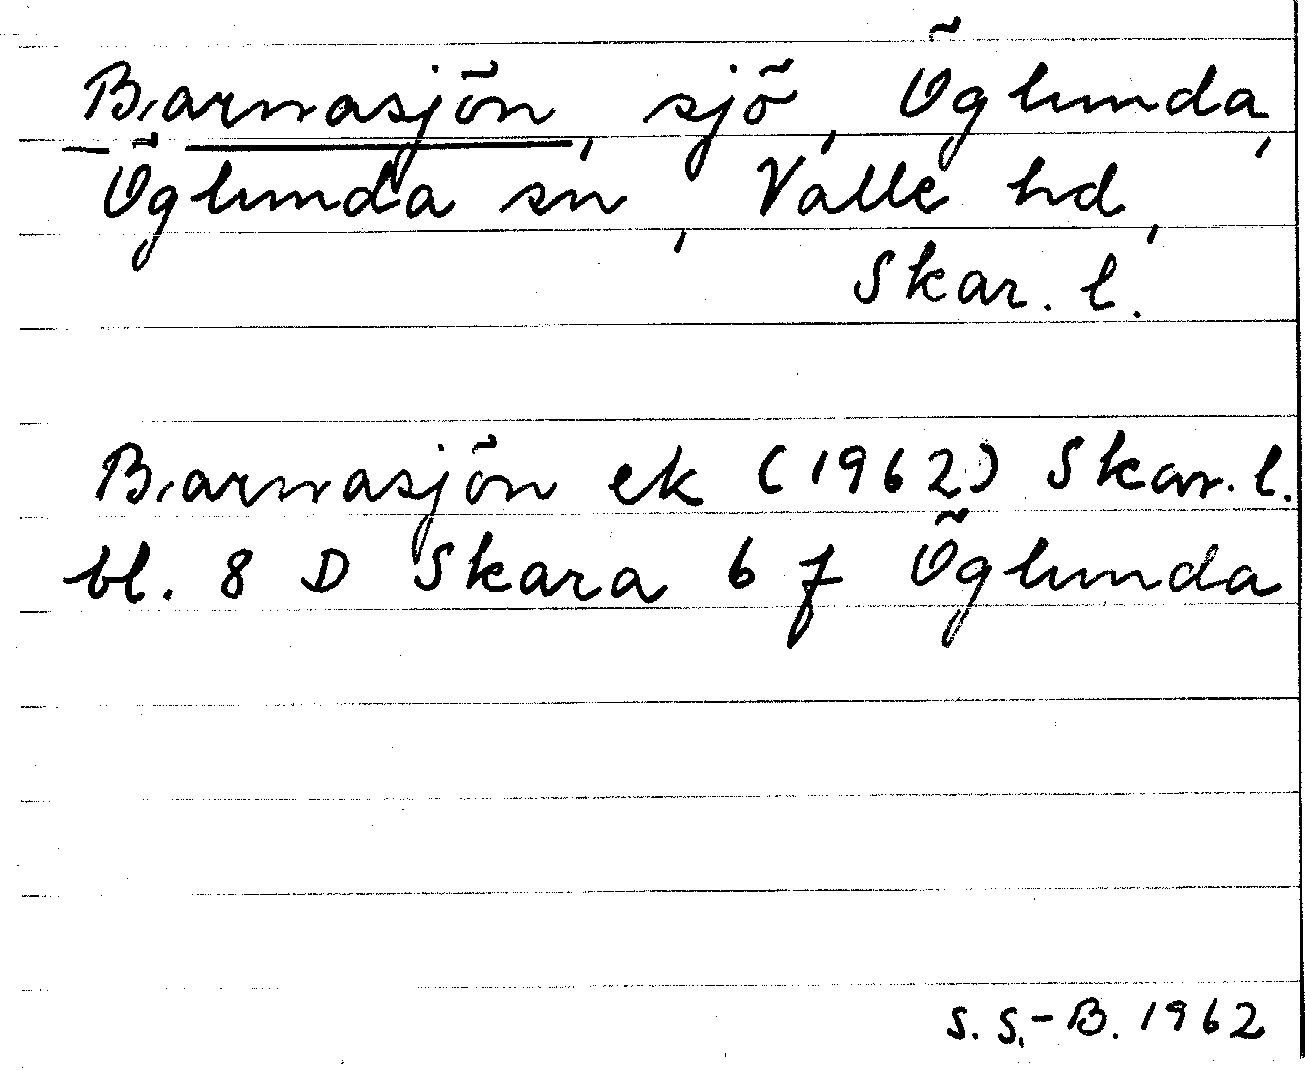 Barnasjön, sjö, Öglunda,
Öglunda sn, Valle hd,
Skar. l.
Barnasjön ek (1962) Skar. l.
bl. 8 D Skara 6 f Öglunda
S. S.-B. 1962